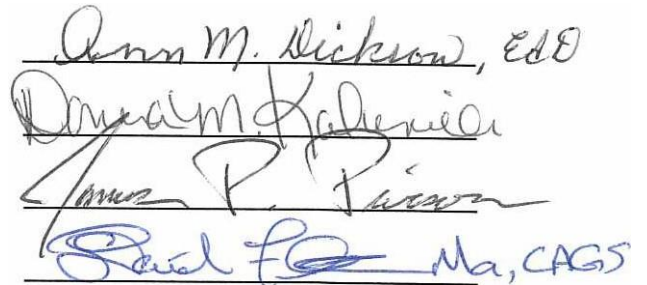 Ann M. Dickson, EdD
Donna M.
James P. Pierson
David Ma, CAGS